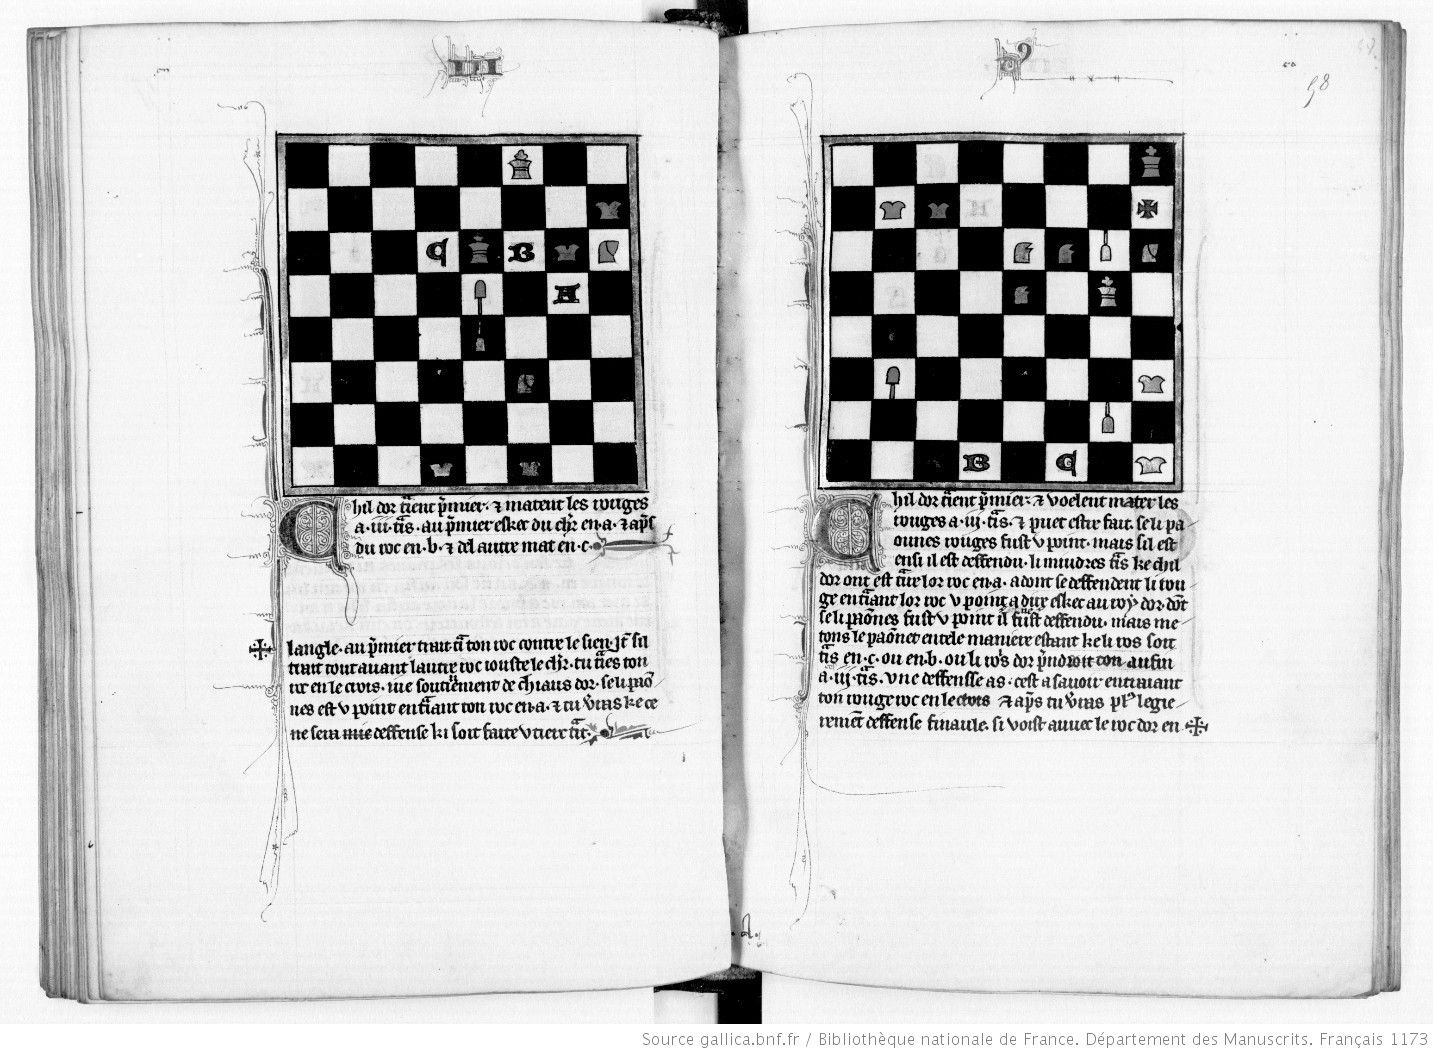 iii
C
B
A
Chil dor traient primier. & matent les rouges
a .iii. trais. au primier eskec du chr en .a. & aps
du roc en .b. & del autre mat en .c.
langle. au primier trait trai ton roc contre le sien. Et sil
trait tout avant lautre roc iouste le chr. tu traies ton
roc en le crois. une soutienement de chiaus dor. se li paon
nes est v point en traiant ton roc en .a. & tu verras ke ce
ne sera mie deffense ki soit faite v tierc trait.
58
B
C
Chil dor traient primier. & voelent mater les
rouges a .iii. trais. & puet estre fait. se li pa
ounes rouges fust v point. mais sil est
ensi il est deffendu. li mindres trais ke chil
dor ont est traire lor roc en .a. adont se deffendent li rou
ge en traiant lor roc v point a dire eskec au roy dor. dont
se li paones fust v point il fust deffendu. mais me
tons le paonet en tele maniere estant ke li rois soit
trais en .c. ou en .b. ou li rois dor prendroit ton aufin
a .iii. trais. une deffensse as. cest a savoir en traiant
ton rouge roc en le crois & aps tu verras plus legie
rement deffense finaule. si voist avuec le roc dor en
Source gallica.bnf.fr / Bibliothèque nationale de France. Département des Manuscrits. Français 1173